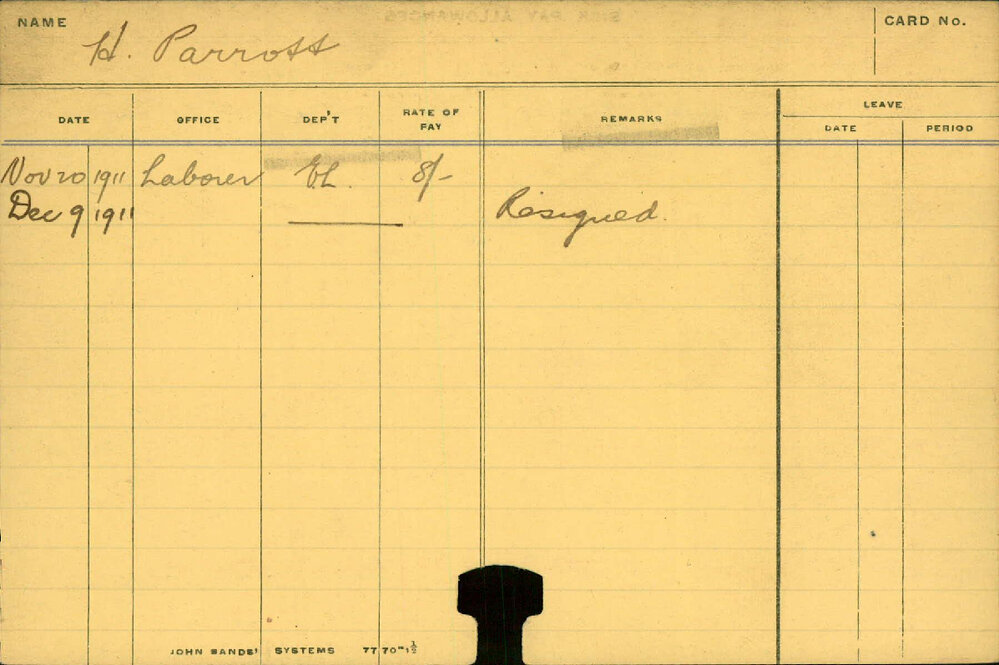 NAME H. Parrott CARD No.
DATE OFFICE DEP'T RATE OF PAY REMARKS LEAVE
DATE PERIOD
Nov 20 1911 Laborer EL. 8/-
Dec 9 1911 Resigned.
JOHN SANDS' SYSTEMS 77 70"1½